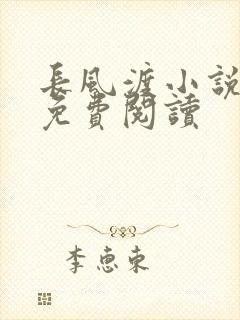 長風渡小說
免費閱讀
李惠東